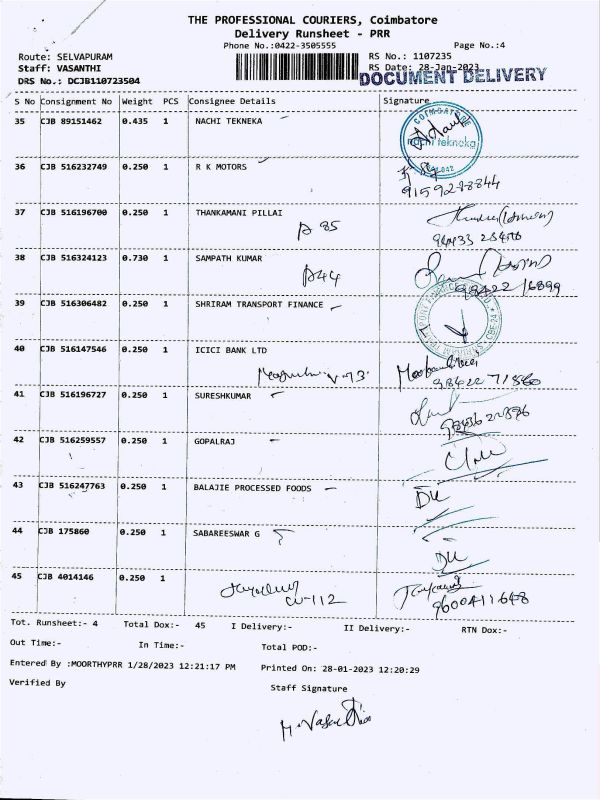 THE PROFESSIONAL COURIERS, Coimbatore
Delivery Runsheet - PRR
Phone No.:0422-3505555 Page No.:4
Route: SELVAPURAM RS No.: 1107235
Staff: VASANTHI RS Date: 28-Jan-2023
DRS No.: DCJB110723504 DOCUMENT DELIVERY
S No Consignment No Weight PCS Consignee Details Signature
35 CJB 89151462 0.435 1 NACHI TEKNEKA
COIMBATORE
nachi tekneka
36 CJB 516232749 0.250 1 R K MOTORS
37 CJB 516196700 0.250 1 THANKAMANI PILLAI
A 85
38 CJB 516324123 0.730 1 SAMPATH KUMAR
A44
98422 16899
39 CJB 516306482 0.250 1 SHRIRAM TRANSPORT FINANCE
40 CJB 516147546 0.250 1 ICICI BANK LTD
98422 71860
41 CJB 516196727 0.250 1 SURESHKUMAR
42 CJB 516259557 0.250 1 GOPALRAJ
43 CJB 516247763 0.250 1 BALAJIE PROCESSED FOODS
44 CJB 175860 0.250 1 SABAREESWAR G
45 CJB 4014146 0.250 1
9600411648
Tot. Runsheet:- 4 Total Dox:- 45 I Delivery:- II Delivery:- RTN Dox:-
Out Time:- In Time:- Total POD:-
Entered By :MOORTHYPRR 1/28/2023 12:21:17 PM Printed On: 28-01-2023 12:20:29
Verified By Staff Signature